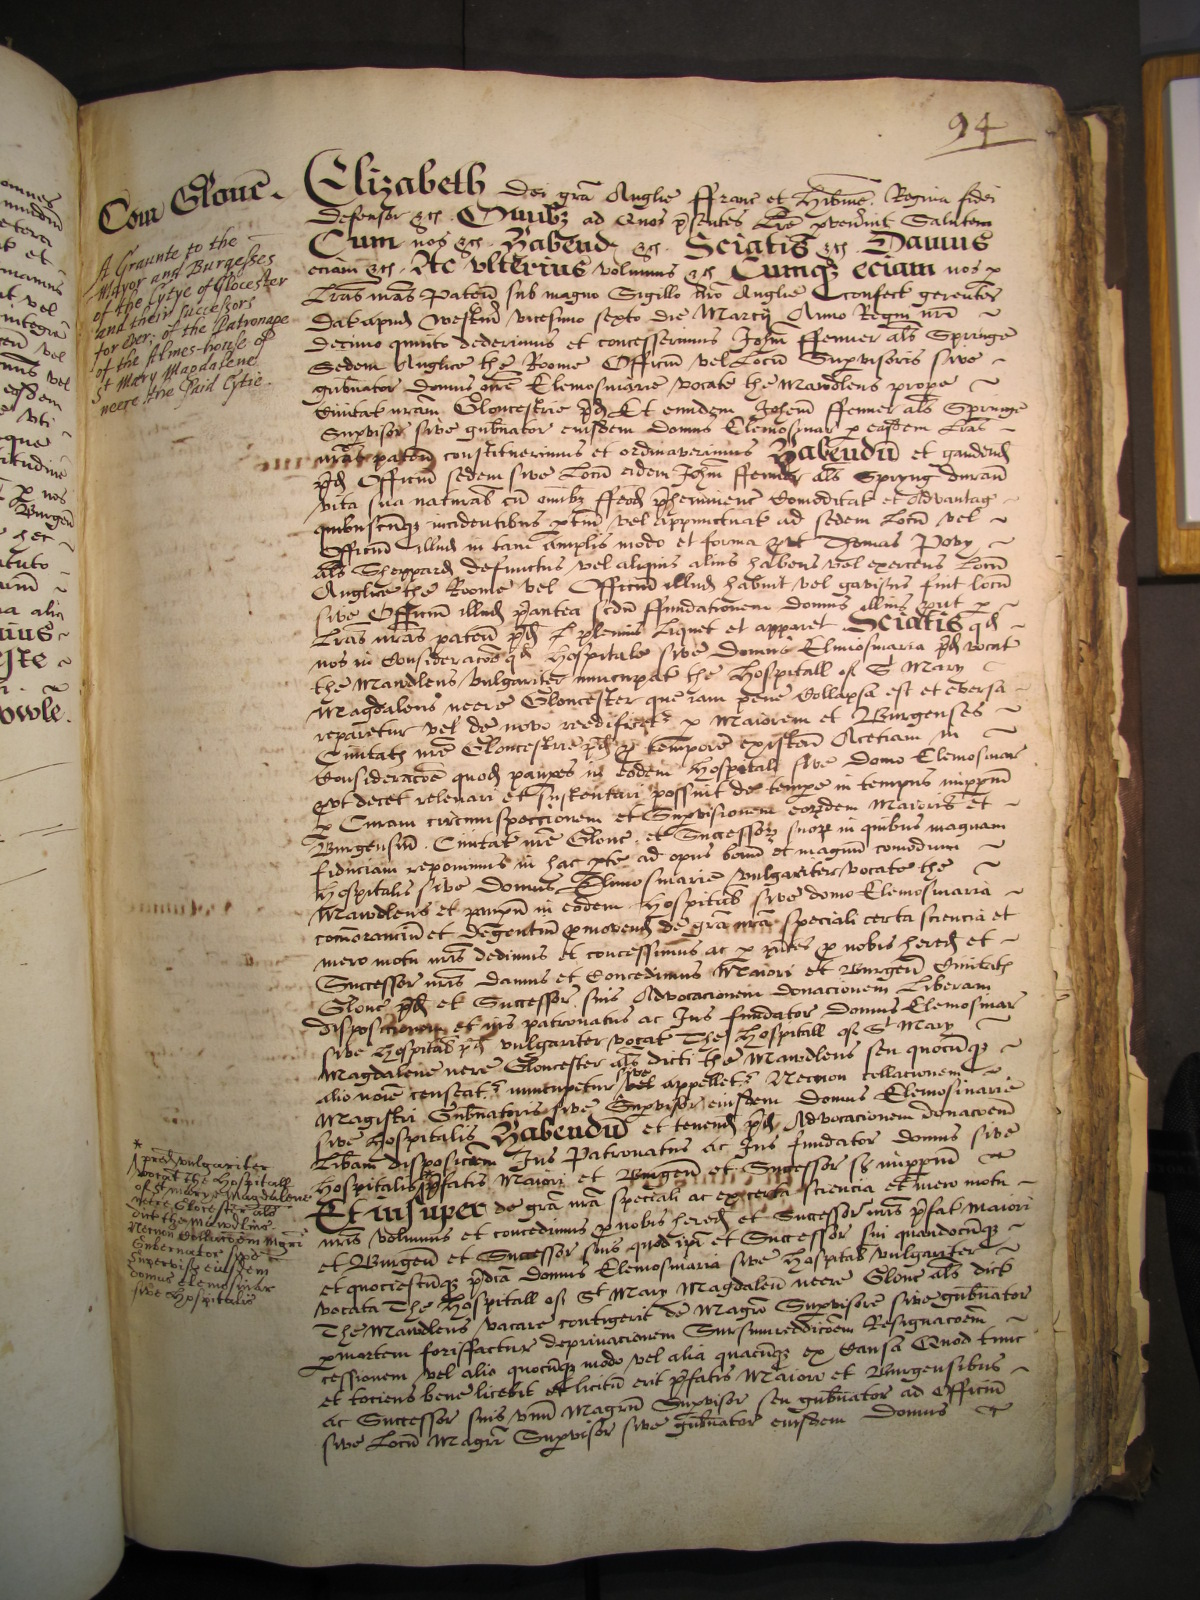 94
Com Glouc̄
A Graunte to the
Mayor and Burgesses
of the Cytye of Glocester
and their successors
for ever, of the Patronage
of the Almes-house of
St Mary Magdalene
neere the said Cytie.
Elizabeth Dei grā Anglie ffranc et Hibnīe Regina fidei
defensor &c. Omībz ad Quos p̄sentes Lrē pvenīnt Salutem
Cum nos &c. Habend &c. Sciatis &c. Damus
eciam &c. Ac ulterius volumus &c Cumqz eciam nos p
Lrās nrās Paten̄ sub magno Sigillo nrō Anglie Confect gerentes
Dat apud Westm̄ vicesimo sexto die Marcij Anno Regni nrī
decimo quinto dederimus et concesserimus Johī ffenner als̄ Springe
Sedem Anglice the Roome Officiū vel Locū Supvisoris sive
gubnator domus nrē Elemosinarie vocate the Mawdlens prope
Civitat nrām Gloucestrie p̄d Et eundem Johem ffenner als̄ Springe
Supvisor sive gubnator eiusdem domus Elemosinar p easdem Lrās
nrās paten̄ constituerimus et ordinaverimus Habendū et gaudend
p̄d Officiū sedem sive Locū eidem Johī ffenner als̄ Spryng duran̄
vita sua naturali cū omībz ffeod p̄heminenc Comoditat et Advantag
quibuscūqz incidentibus ptin̄ vel appunctuat ad sedem Locū vel
Officiū illud in tam amplis modo et forma put Thomas Povy
als̄ Sheppard defunctus vel aliquis alius habens vel exercens Locū
Anglice the Roome vel Officiū illud habuit vel gavisus fuit locū
sive Officiū illud p̄antea scdm̄ ffundationem domus illius put p
Lrās nrās paten̄ p̄d plenius Liquet et apparet Sciatis qd
nos in Consideracōe qd Hospitale sive domus Elimosinaria p̄d vocat
the Mawdlens vulgariter nuncupat the Hospitall of St Mary
Magdalens neere Gloucester que iam pene Collapsa est et eversa
reparetur vel de novo reedificet p Maiorem et Burgenses
Civitatis nrē Gloucestrie p̄d p tempore existen̄ Acetiam in
Consideracōe quod paupes in eodem Hospitali sive domo Elemosinar
put decet relevari et sustentari possint de tempe in tempus impptm̄
p Curam circumspeccionem et Supvisionem eorundem Maioris et
Burgensiū Civitat nrē Glouc et Successorz suorz in quibus magnam
fiduciam reponimus in hac pte ad opus bonū et magnū comodum
Hospitalis sive domus Elimosinarie vulgariter vocate the
Mawdlens et paupū in eodem Hospitali sive domo Elemosinaria
comōrancium et degentiū pmovend de grā nrā speciali certa sciencia et
mero motu nrīs dedimus et concessimus ac p pn̄tes p nobis hered et
Successor nrīs damus et Concedimus Maiori et Burgen̄ Civitatis
Glouc p̄d et Successor suis Advocacionem donacionem Liberam
disposicionem et ius patronatus ac Ius fundator domus Elemosinar
sive Hospitalis p̄d vulgariter vocat The Hospitall of St Mary
Magdalene nere Gloucester als̄ dicti the Mawdlens seu quocūqz
alio noīe censeat nuncupetur sive appellet Necnon collacionem
Magistri Gubnatoris sive Supvisor eiusdem domus Elemosinarie
sive Hospitalis Habendū et tenend p̄d Advocacionem donacoēm
Libam disposicōem Ius Patronatus ac Ius fundator domus sive
Hospitalis * p̄fatis Maiori et Burgen̄ et Successor s impptm̄
Et insuper de grā nrā speciali ac ex certa sciencia et mero motu
nrīs volumus et concedimus p nobis hered et Successor nrīs p̄fat Maiori
et Burgen̄ et Successor suis quod ipī et Successor sui quandocūqz
et quociescūqz p̄dicā domus Elemosinaria sive Hospital vulgariter
vocata The Hospitall of St Mary Magdalen neere Glouc als̄ dict
The Mawdlens vacare contigerit de Magrō Supvisore sive gubnator
p mortem forisfactur deprivacionem Sursumreddicōem Resignacoēm
cessionem vel alio quocūqz modo vel alia quacūqz ex Causa Quod tunc
et tociens bene licebit et licitū erit p̄fatis Maiori et Burgensibus
ac Successor suis unū Magrūm Supvisor seu gubnator ad Officiū
sive Locū Magrī Supvisor sive gubnator eiusdem Domus
*
pred vulgariter
vocat the Hospitall
of St Mary Magdalene
neere Glocester als
dict the Mawdlins
Necnon Collacioem Magri
Gubernator sive
Supervis eiusdem
domus Elemosinar
sive Hospitalis